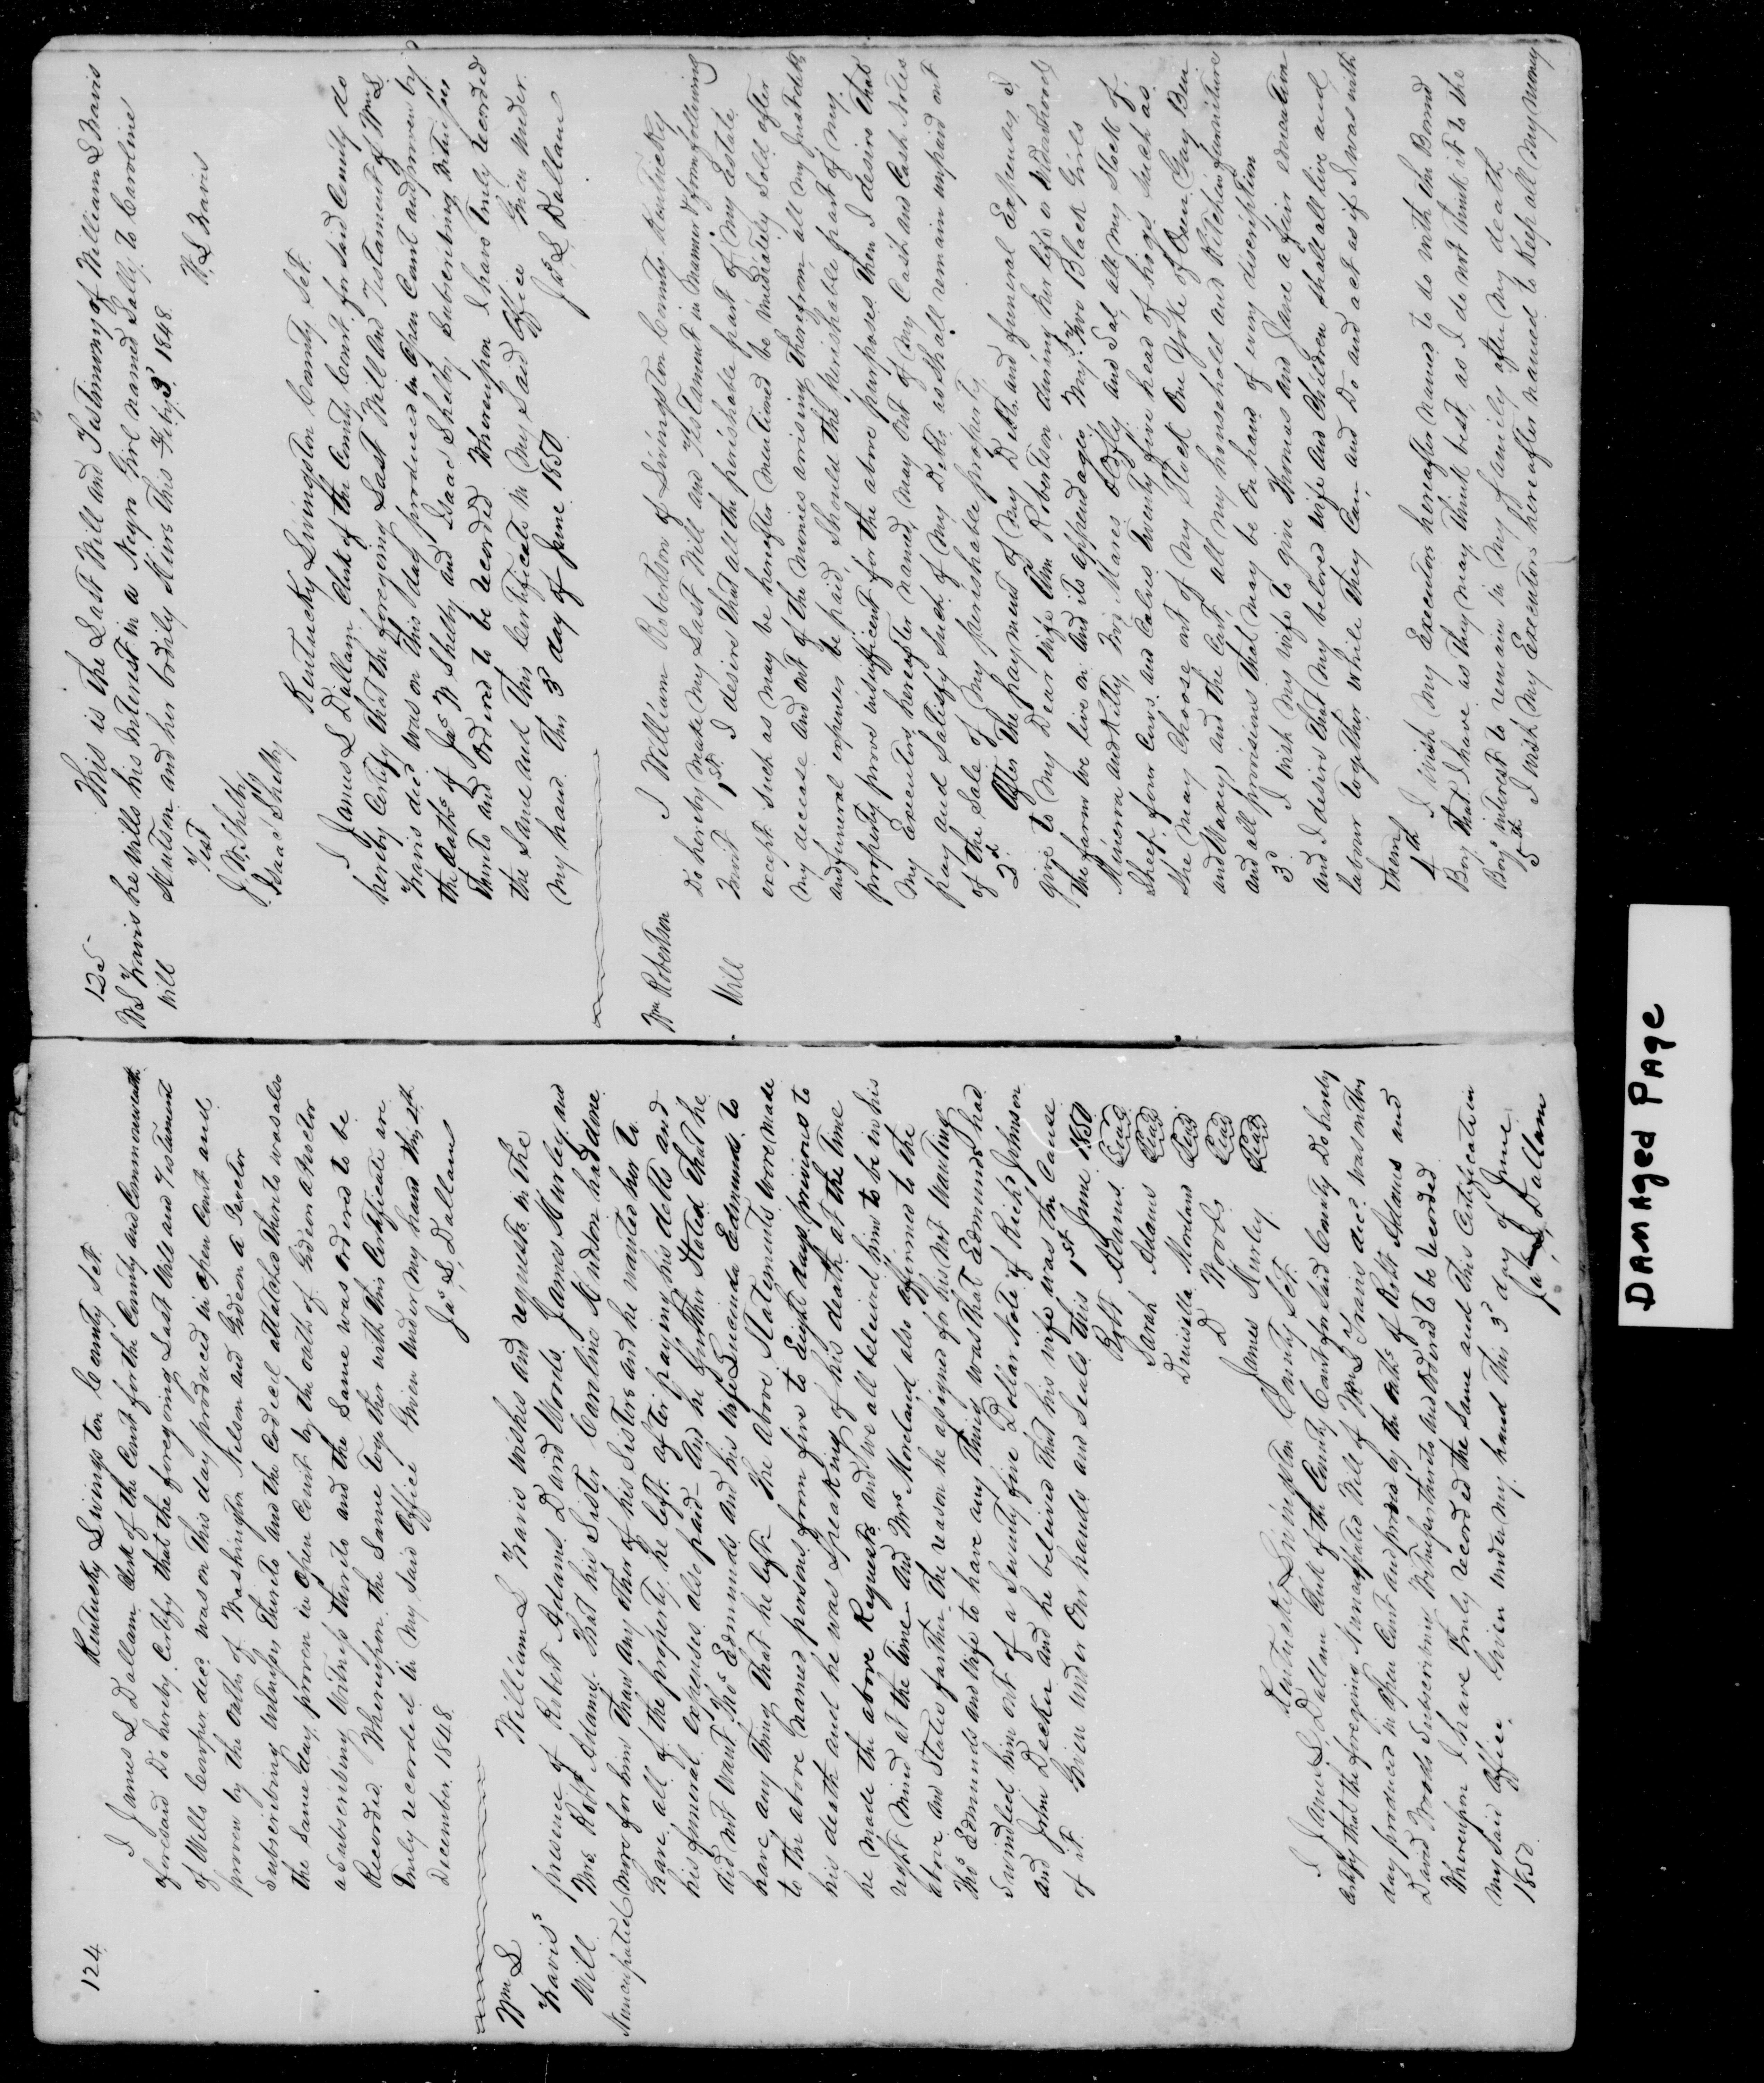 124
Kentucky Livingston County Sct.
I James L Dallam Clerk of the Court for the County and Commonwealth
aforesaid Do hereby Certify that the foregoing Last Will and Testament
of Wills Cooper decd. was on this day produced in open Court and
proven by the oaths of Washington Nelson and Gideon A Proctor
Subscribing witnesses thereto and the Codecil attatched thereto was also
the same day proven in open Court by the oath of Gideon A Proctor
a Subscribing Witness thereto and the Same was ordered to be
Recorded. Whereupon the Same together with this Certificate are
Truly recorded in my said office Given under my hand this 4th
December 1848.
Jas. L. Dallam
Wm L
Travis's
Will
Nuncupated
William L Travis wishes and requests in the
presence of Robert Adams David Woods. James Hurley and
Mrs Robt Adams. That his Sister Caroline Hutson had done
more for him Than any other of his Sisters and he wanted her to
have all of the property he left. after paying his debts and
his funeral expenses also paid- And he further Stated that he
did not want Thos Edmunds and his wife Lucinda Edmunds to
have any thing that he left- The above Statements were made
to the above named persons from five to Eight days previous to
his death and he was Speaking of his death at the time
he made the above Requests and we all beleived him to be in his
right mind at the time And Mrs Moreland also affirmed to the
above and States farther the reason he assigned for his not wanting
Thos Edmunds and wife to have any thing was that Edmunds had
Swindled him out of a Seventy five Dollar Note of Richd Johnson
and John Decker and he beleived that his wife was the Cause
of it. Given under Our hands and Seals this 1st June 1850
Robt Adams Seal
Sarah Adams Seal
Druisilla Moreland Seal
D Woods Seal
James Hurley Seal
Kentucky Livingston County Sct.
I James L Dallam Clerk of the County Court for Said County Do hereby
Certify that the foregoing Nuncupated Will of Wm L Travis decd was on this
day produced in open Court and proved by the oaths of Robt Adams and
David Woods Subscribing Witnesses thereto and Ordered to be recorded
Whereupon I have Truly recorded the Same and this Certificate in
my said office. Given under my hand this 3d day of June
1850.
Jas L Dallam
125
W L Travis
Will
This is the Last Will and Testimony of William L Travis
he wills his interest in a Negro Girl named Sally. to Caroline
Hutson and her bodily Heirs This Feby 3d 1848.
W. L Travis
Test
J. W. Shelby
Isaac Shelby
Kentucky Livingston County Sct.
I James L Dallam Clerk of the County Court for Said County do
hereby Certify that the foregoing Last Will and Testament of Wm L
Travis decd was on this day produced in Open Court and proven by
the Oaths of Jas W Shelby and Isaac Shelby Subscribing Witnesses
Thereto and Ordered to be recorded Whereupon I have Truly recorded
the Same and this Certificate in my Said Office Given Under
my hand this 3d day of June 1850
Jas L Dallam
Wm Robertson
Will
I William Robertson of Livingston County Kentucky
Do hereby make my Last Will and Testament in manner & form following
1st I desire that all the perishable part of my Estate
except Such as may be hereafter mentioned be imidiately Sold after
my decease and out of the monies arrising therefrom all my Just debts
and funeral expenses be paid, Should the perishable part of my
property prove insufficient for the above purposes then I desire that
my Executors hereafter named, may out of my Cash and Cash Notes
pay and Satisfy Such of my Debts as Shall remain unpaid out
of the Sale of my perishable property
2d After the payment of my Debts and funeral Expenses I
give to my Dear wife Ann Robertson during her life or widowhood
the farm we live on And its appendages My Two Black Girls
Minerva and Kitty, Two Mares and Sal, all my Stock of
Sheep. four Cows and Calves Twenty five head of hogs Such as
She may Choose out of my Stock One Yoke of Oxen Gay Ben
and and the Cart, all my household and Kitchen furniture
and all provisions that may be on hand of every discription
3d I wish my wife to give Thomas and Jane a fair education
and I desire that my beloved wife and Children shall all live and
labour together while they Can, and Do and act as if I was with
them
4th I wish my Executors hereafter named to do with the Bound
Boy that I have as they may think best, as I do not think it to the
Boys interest to remain in my family after my death
5th I wish my Executors hereafter named to Keep all my money
DAMAged PAge